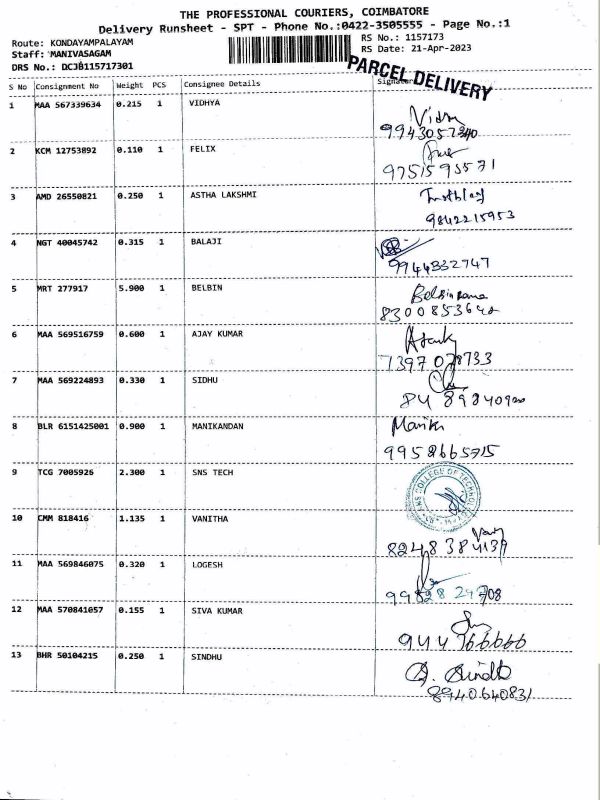 THE PROFESSIONAL COURIERS, COIMBATORE
Delivery Runsheet - SPT - Phone No.:0422-3505555 - Page No.:1
Route: KONDAYAMPALAYAM RS No.: 1157173
Staff: MANIVASAGAM RS Date: 21-Apr-2023
DRS No.: DCJB115717301
PARCEL DELIVERY
S No Consignment No Weight PCS Consignee Details Signature
1 MAA 567339634 0.215 1 VIDHYA
2 KCM 12753892 0.110 1 FELIX
9751595571
3 AMD 26550821 0.250 1 ASTHA LAKSHMI
9842215953
4 NGT 40045742 0.315 1 BALAJI
9944332747
5 MRT 277917 5.900 1 BELBIN
6 MAA 569516759 0.600 1 AJAY KUMAR
7397078733
7 MAA 569224893 0.330 1 SIDHU
8 BLR 6151425001 0.900 1 MANIKANDAN
9952665715
9 TCG 7005926 2.300 1 SNS TECH
COLLEGE OF TECHNOLOGY
10 CMM 818416 1.135 1 VANITHA
8248384139
11 MAA 569846075 0.320 1 LOGESH
12 MAA 570841057 0.155 1 SIVA KUMAR
13 BHR 50104215 0.250 1 SINDHU
8940640831